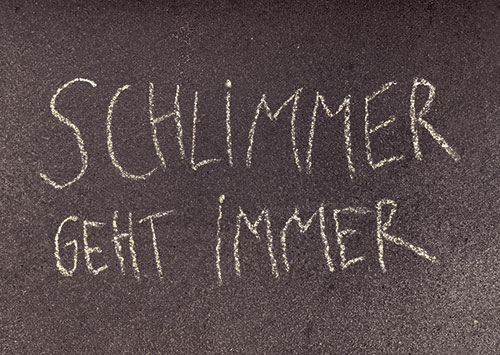 SCHLiMMER
GEHT iMMER